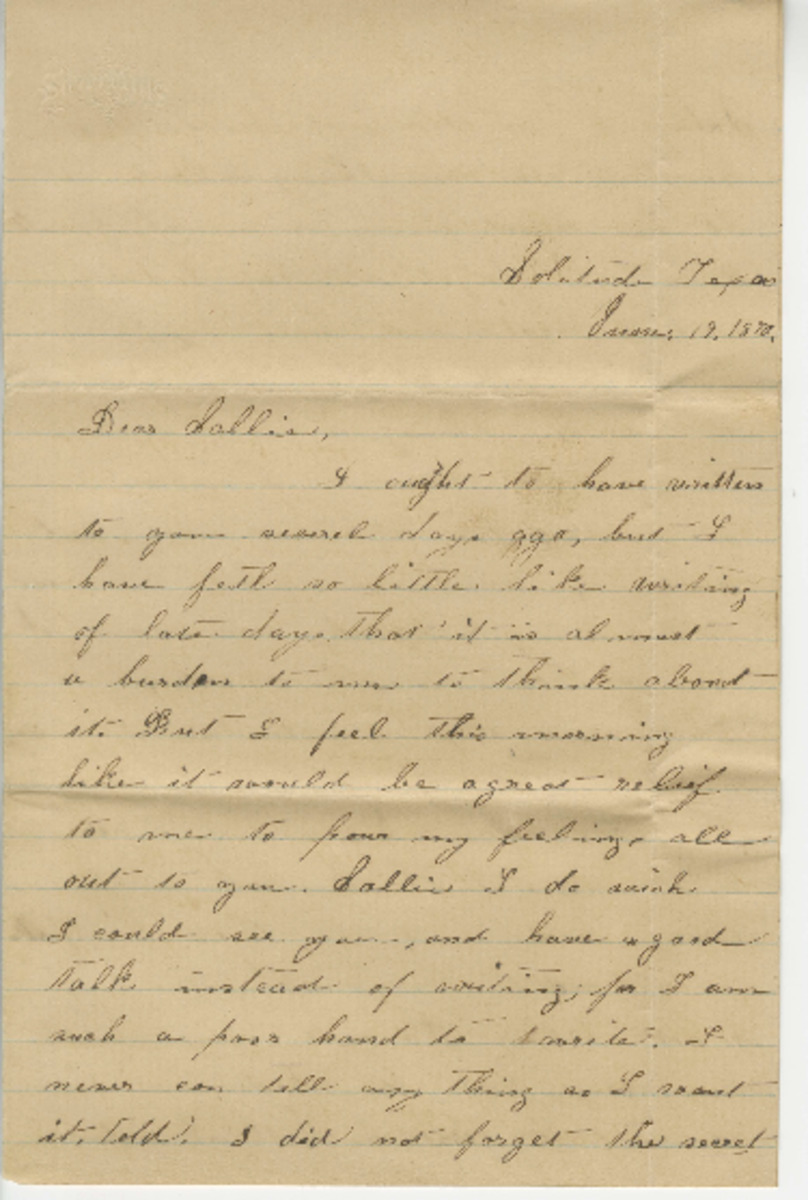 Solitude Texas
June, 19, 1870.
Dear Sallie,
I ought to have written
to you severel days ago, but I
have felt so little like writing
of late days that it is almost
a burden to me to think about
it. But I feel this morning
like it would be a great relief
to me to pour my feelings all
out to you. Sallie I do wish
I could see you, and have a good
talk instead of writing; for I am
such a poor hand to write. I
never can tell any thing as I want
it, told. I did not forget the secret